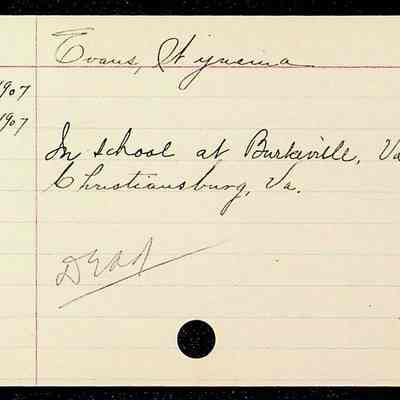 Evans,
1907
1907
In school at Burkeville, Va
Christiansburg, Va.
Dead